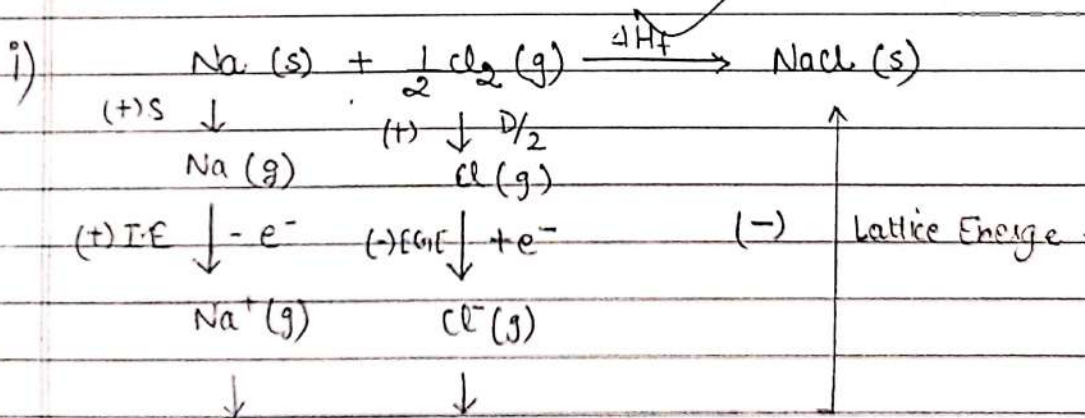 ΔHf
i) Na (s) + 1/2 Cl2 (g) ⟶ NaCl (s)
(+) S ↓ (+) ↓ D/2
Na (g) Cl (g)
(+) I.E ↓ - e⁻ (-) EGE ↓ + e⁻ (-) Lattice Energe
Na⁺ (g) Cl⁻ (g)
↓ ↓